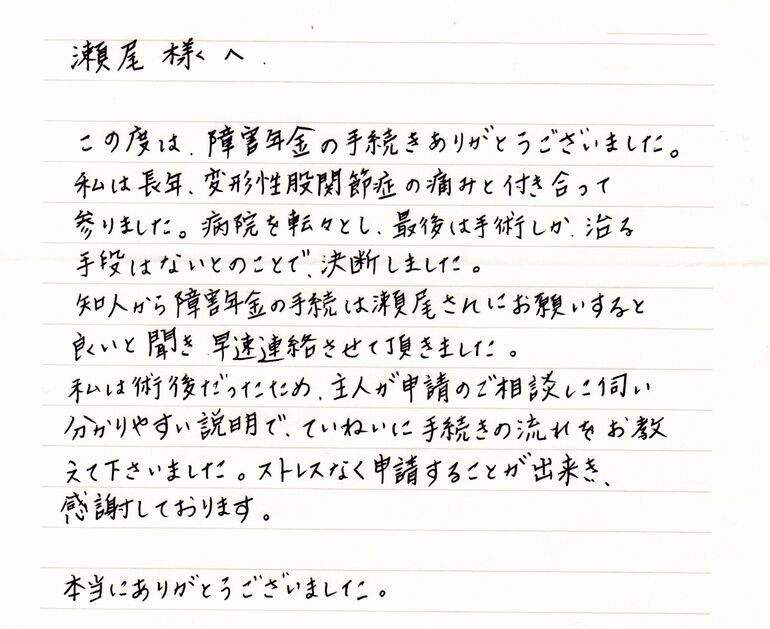 瀬尾 様く へ.
この度は、障害年金の手続きありがとうございました。
私は長年、変形性股関節症の痛みと付き合って
参りました。病院を転々とし、最後は手術しか、治る
手段はないとのことで、決断しました。
知人から障害年金の手続は瀬尾さんにお願いすると
良いと聞き 早速連絡させて頂きました。
私は術後だったため、主人が申請のご相談に伺い
分かりやすい説明で、ていねいに手続きの流れをお教
えて下さいました。ストレスなく申請することが出来き、
感謝しております。
本当にありがとうございました。